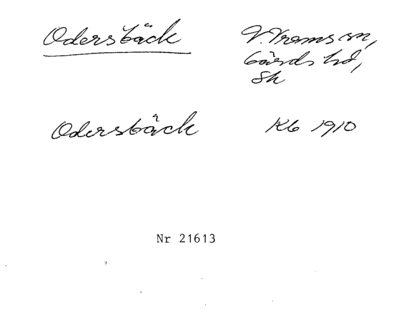 Odersbäck
V. Vrams sn,
Gärds hd,
Sk
Odersbäck Kb 1910
Nr 21613